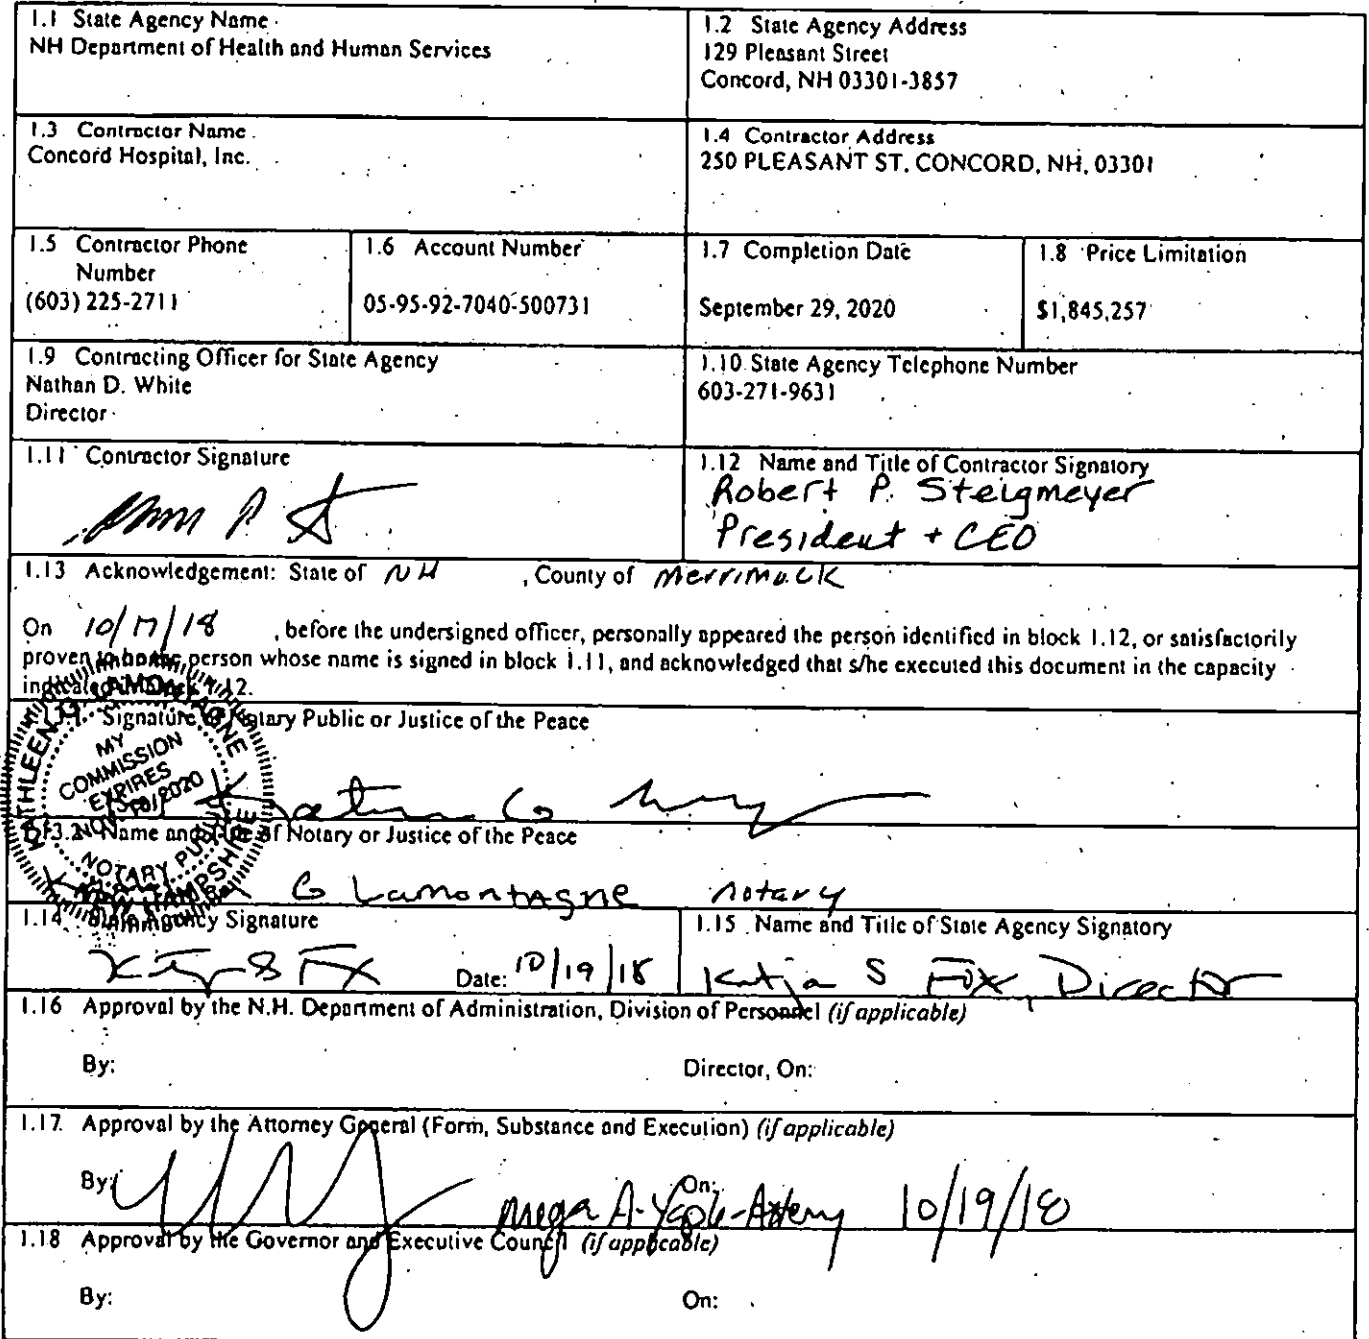 1.1 State Agency Name
NH Department of Health and Human Services
1.2 State Agency Address
129 Pleasant Street
Concord, NH 03301-3857
1.3 Contractor Name
Concord Hospital, Inc.
1.4 Contractor Address
250 PLEASANT ST, CONCORD, NH, 03301
1.5 Contractor Phone
Number
(603) 225-2711
1.6 Account Number
05-95-92-7040-500731
1.7 Completion Date
September 29, 2020
1.8 Price Limitation
$1,845,257
1.9 Contracting Officer for State Agency
Nathan D. White
Director
1.10 State Agency Telephone Number
603-271-9631
1.11 Contractor Signature
1.12 Name and Title of Contractor Signatory
Robert P. Steigmeyer
President + CEO
1.13 Acknowledgement: State of NH , County of Merrimack
On 10/17/18 , before the undersigned officer, personally appeared the person identified in block 1.12, or satisfactorily
proven to be the person whose name is signed in block 1.11, and acknowledged that s/he executed this document in the capacity
indicated in block 1.12.
1.13.1 Signature of Notary Public or Justice of the Peace
MY
COMMISSION
EXPIRES
2020
NOTARY PUBLIC
NEW HAMPSHIRE
1.13.2 Name and Title of Notary or Justice of the Peace
G Lamontagne notary
1.14 State Agency Signature
Date: 10/19/18
1.15 Name and Title of State Agency Signatory
Katja S Fox, Director
1.16 Approval by the N.H. Department of Administration, Division of Personnel (if applicable)
By: Director, On:
1.17 Approval by the Attorney General (Form, Substance and Execution) (if applicable)
By: On: 10/19/18
1.18 Approval by the Governor and Executive Council (if applicable)
By: On: